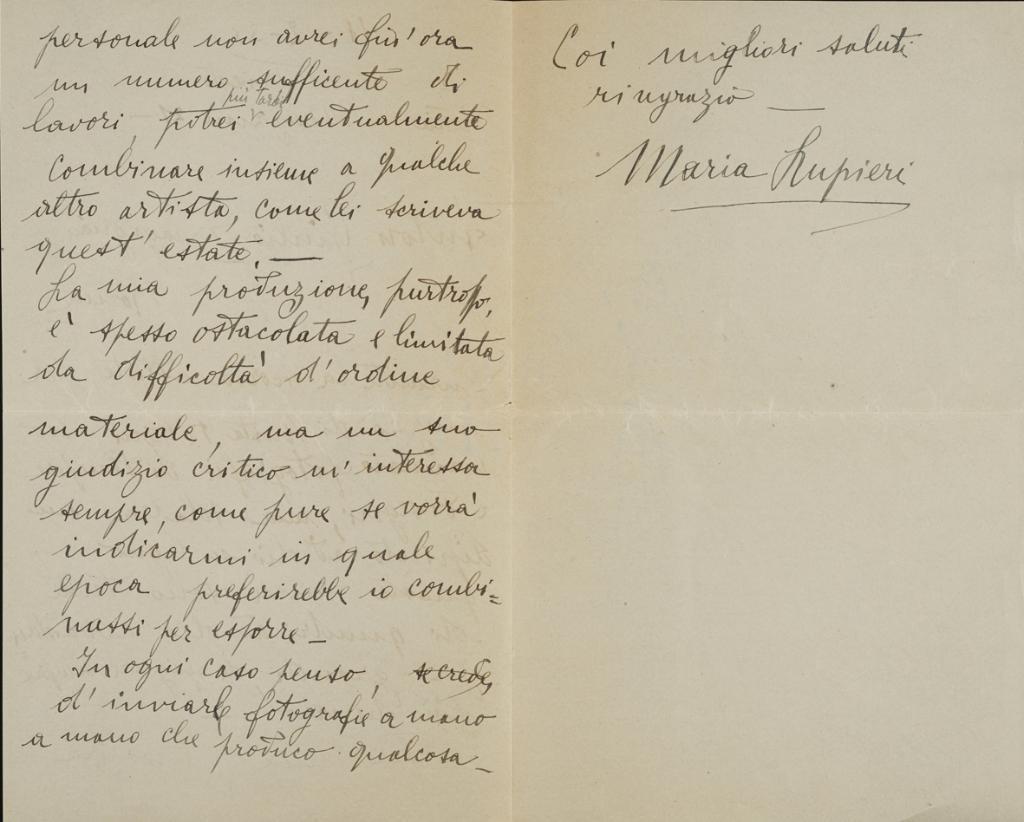 personale non avrei fin'ora
un numero sufficente di
più tardi
lavori, potrei eventualmente
combinare insieme a qualche
altro artista, come lei scriveva
quest'estate. —
La mia produzione, purtroppo,
è spesso ostacolata e limitata
da difficoltà d'ordine
materiale, ma un suo
giudizio critico m'interessa
sempre, come pure se vorrà
indicarmi in quale
epoca preferirebbe io combi=
nassi per esporre —
In ogni caso penso, se crede,
d'inviarle fotografie a mano
a mano che produco qualcosa —
Coi migliori saluti
ringrazio —
Maria Lupieri